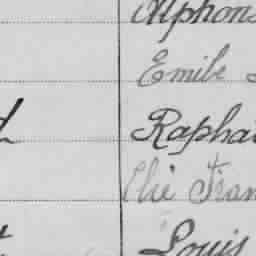 Alphons
Emile
Raphaë
Elie Fran
Louis